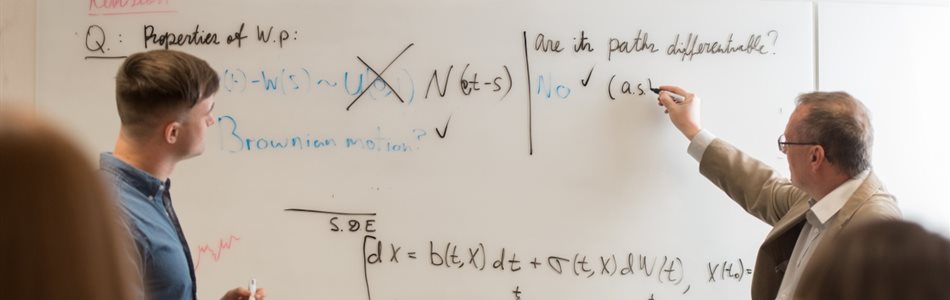 Revision
Q.: Properties of W.p:
(t)-W(s) ~ U(0,1) N(0,t-s)
Brownian motion? ✓
are its paths differentiable?
No ✓ (a.s)
S.D.E
dX = b(t,X)dt + σ(t,X)dW(t), X(t₀)=
t t